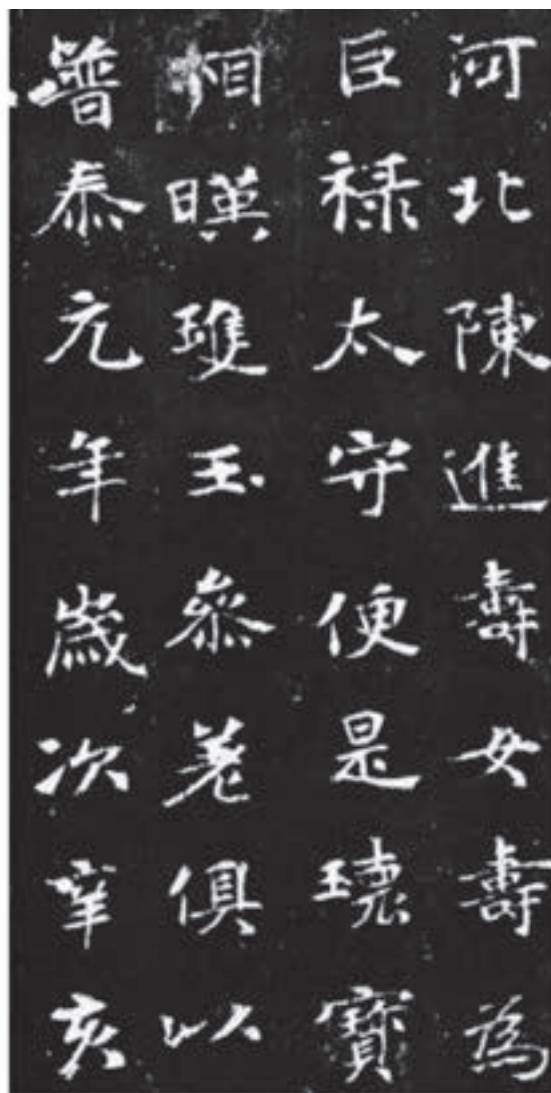 河北陳進壽女壽為
巨祿太守便是瓌寶
相暎璡玉參差俱以
普泰元年歲次辛亥